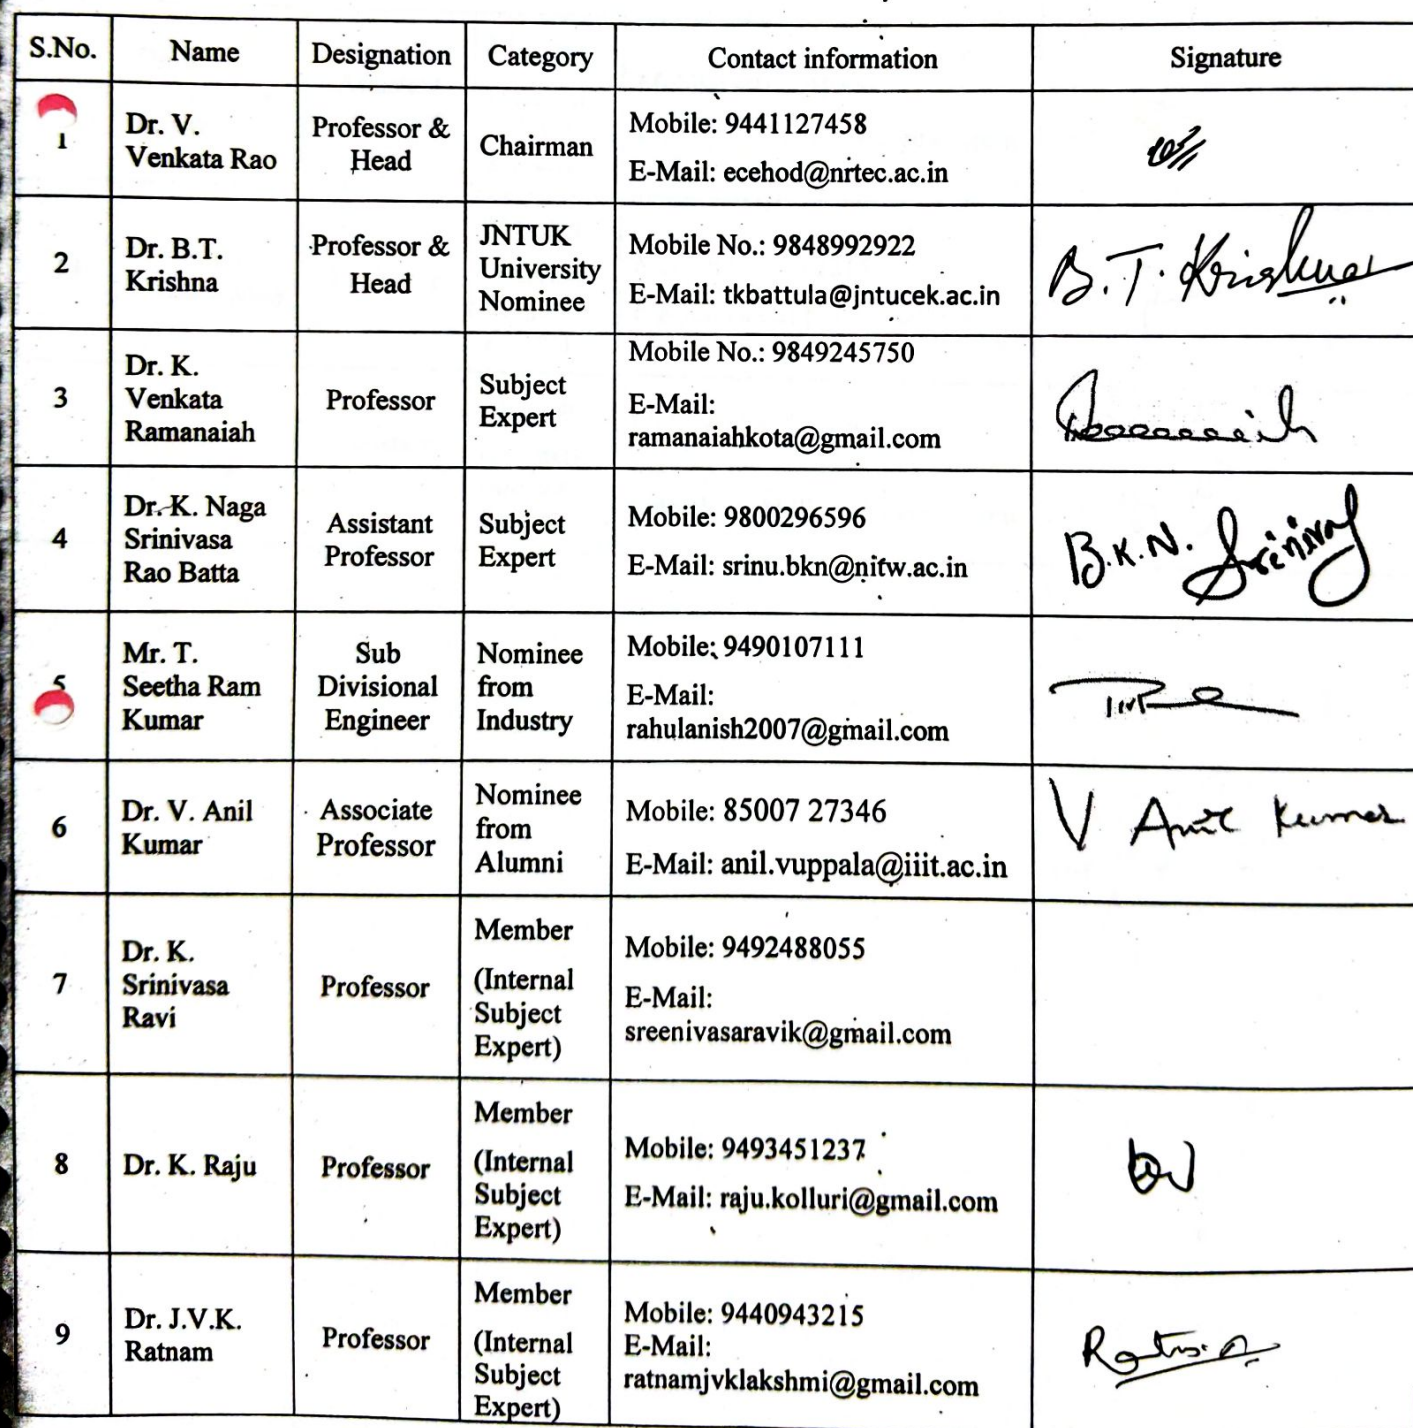 S.No. Name Designation Category Contact information Signature
1
Dr. V.
Venkata Rao
Professor &
Head
Chairman
Mobile: 9441127458
E-Mail: ecehod@nrtec.ac.in
2
Dr. B.T.
Krishna
Professor &
Head
JNTUK
University
Nominee
Mobile No.: 9848992922
E-Mail: tkbattula@jntucek.ac.in
B.T. Krishna
3
Dr. K.
Venkata
Ramanaiah
Professor
Subject
Expert
Mobile No.: 9849245750
E-Mail:
ramanaiahkota@gmail.com
4
Dr. K. Naga
Srinivasa
Rao Batta
Assistant
Professor
Subject
Expert
Mobile: 9800296596
E-Mail: srinu.bkn@nitw.ac.in
B.K.N. Srinivas
5
Mr. T.
Seetha Ram
Kumar
Sub
Divisional
Engineer
Nominee
from
Industry
Mobile: 9490107111
E-Mail:
rahulanish2007@gmail.com
6
Dr. V. Anil
Kumar
Associate
Professor
Nominee
from
Alumni
Mobile: 85007 27346
E-Mail: anil.vuppala@iiit.ac.in
V Anil Kumar
7
Dr. K.
Srinivasa
Ravi
Professor
Member
(Internal
Subject
Expert)
Mobile: 9492488055
E-Mail:
sreenivasaravik@gmail.com
8
Dr. K. Raju
Professor
Member
(Internal
Subject
Expert)
Mobile: 9493451237
E-Mail: raju.kolluri@gmail.com
9
Dr. J.V.K.
Ratnam
Professor
Member
(Internal
Subject
Expert)
Mobile: 9440943215
E-Mail:
ratnamjvklakshmi@gmail.com